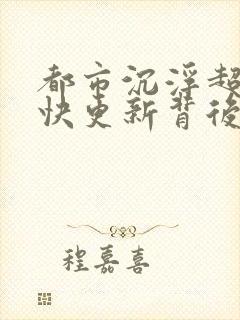 都市沉浮超
快更新背後
程嘉喜